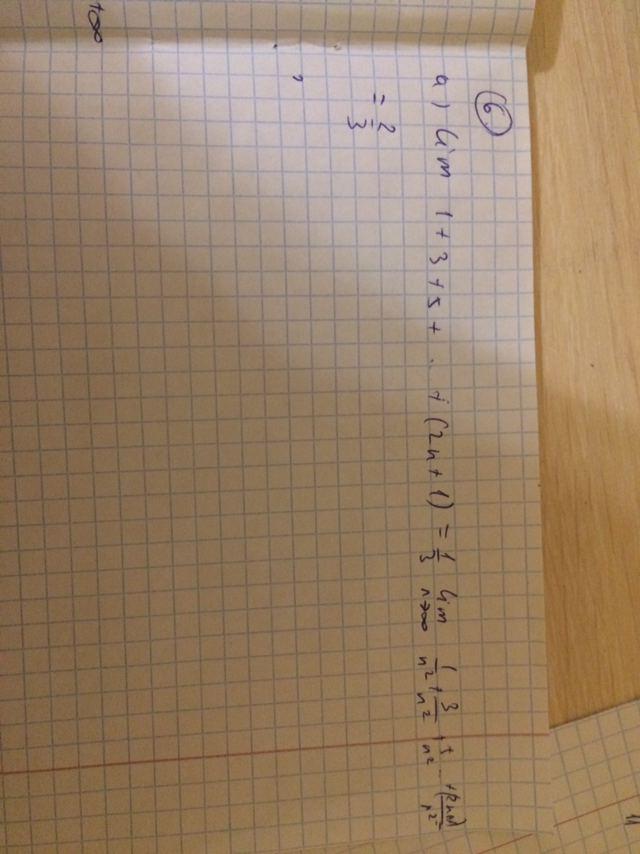 6.
a) lim 1 + 3 + 5 + . + (2n + 1) = 1/3 lim n→∞ 1/n² + 3/n² + 5/n² ... + (2n+1)/n²
= 2/3
+∞